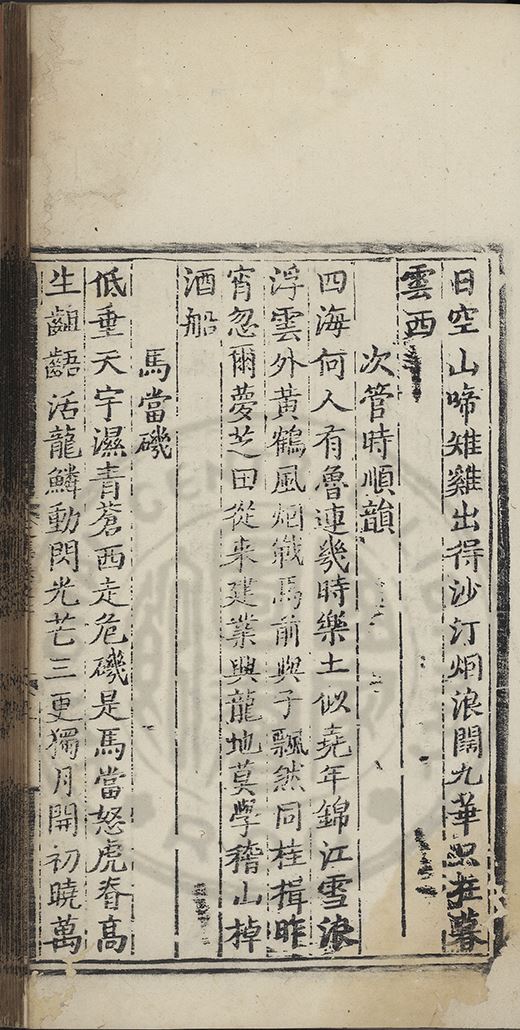 日空山啼雉雞出得沙汀烟浪闊九華只在暮
雲西
次管時順韻
四海何人有魯連幾時樂土似堯年錦江雪浪
浮雲外黃鶴風烟戰馬前與子飄然同桂楫昨
宵忽爾夢芝田從來建業興龍地莫學稽山棹
酒船
馬當磯
低垂天宇濕青蒼西走危磯是馬當怒虎脊高
生齟齬活龍鱗動閃光芒三更獨月開初曉萬